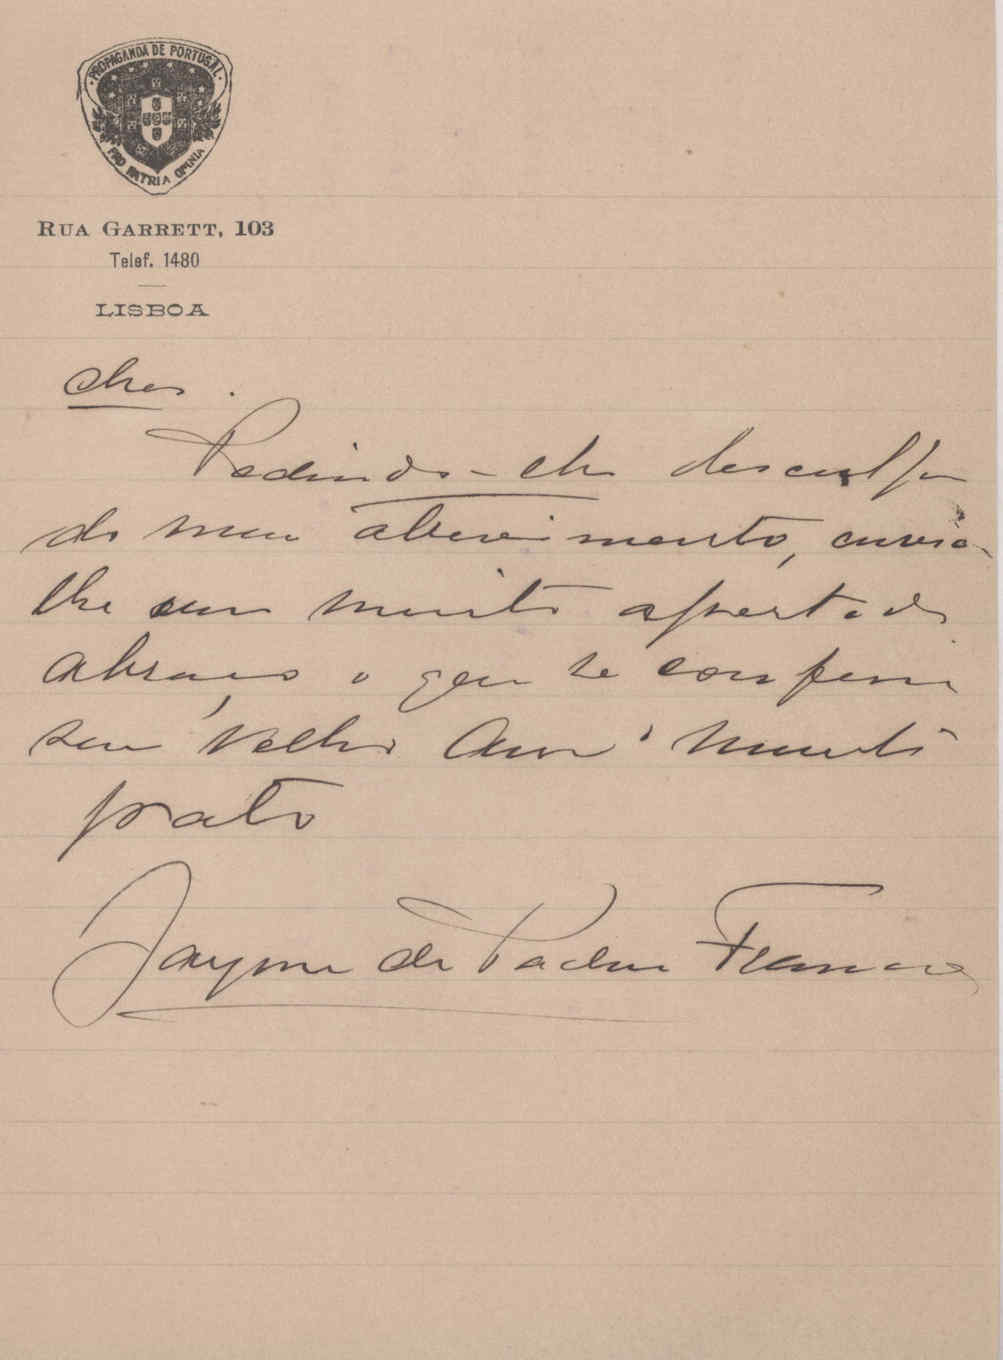 PROPAGANDA DE PORTUGAL
PRO PATRIA OMNIA
RUA GARRETT, 103
Telef. 1480
LISBOA
Pedindo-lhe desculpa
do meu atrevimento, envio-
lhe um muito apertado
abraço o que se confessa
seu velho Amº muito
grato
Jayme de Padua Franco